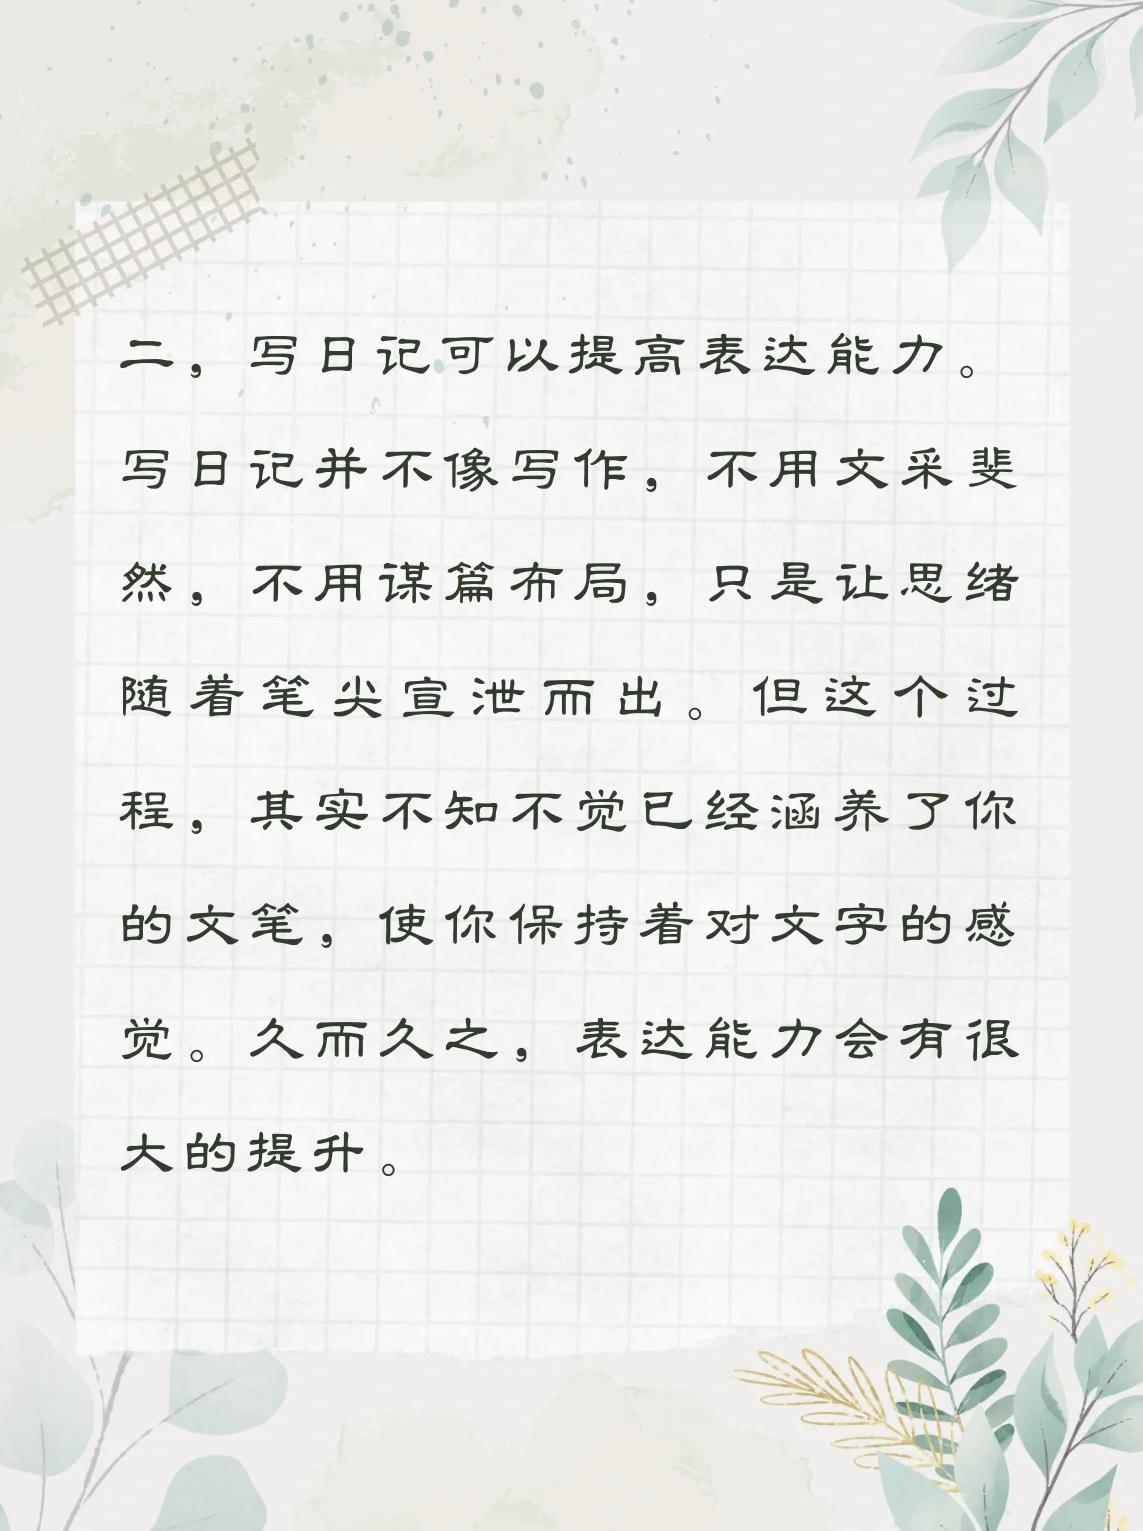 二，写日记可以提高表达能力。
写日记并不像写作，不用文采斐
然，不用谋篇布局，只是让思绪
随着笔尖宣泄而出。但这个过
程，其实不知不觉已经涵养了你
的文笔，使你保持着对文字的感
觉。久而久之，表达能力会有很
大的提升。